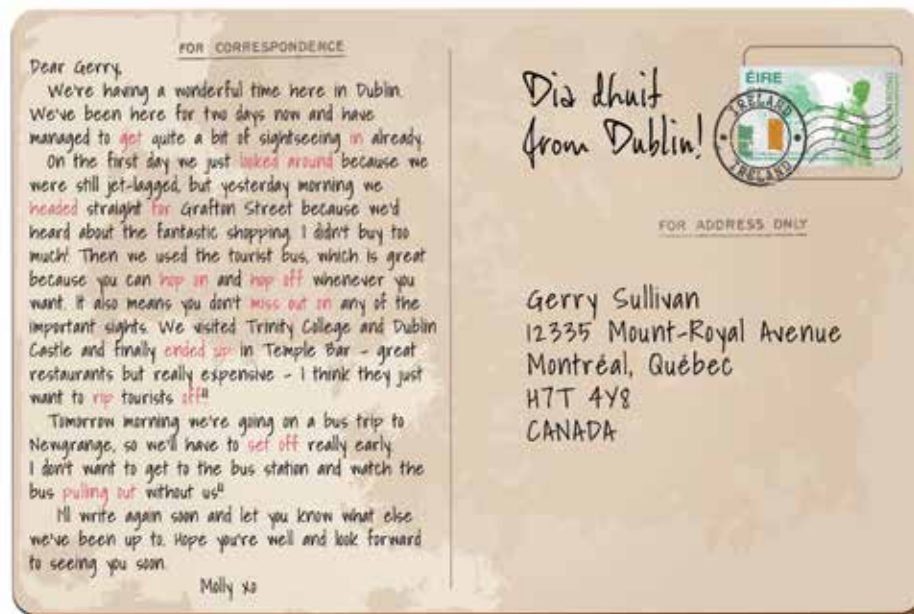 FOR CORRESPONDENCE
Dear Gerry,
We're having a wonderful time here in Dublin.
We've been here for two days now and have
managed to get quite a bit of sightseeing in already.
On the first day we just looked around because we
were still jet-lagged, but yesterday morning we
headed straight for Grafton Street because we'd
heard about the fantastic shopping. I didn't buy too
much! Then we used the tourist bus, which is great
because you can hop on and hop off whenever you
want. It also means you don't miss out on any of the
important sights. We visited Trinity College and Dublin
Castle and finally ended up in Temple Bar - great
restaurants but really expensive - I think they just
want to rip tourists off!!
Tomorrow morning we're going on a bus trip to
Newgrange, so we'll have to set off really early.
I don't want to get to the bus station and watch the
bus pulling out without us!!
I'll write again soon and let you know what else
we've been up to. Hope you're well and look forward
to seeing you soon.
Molly xo
Dia dhuit
from Dublin!
ÉIRE
IRELAND
IRELAND
FOR ADDRESS ONLY
Gerry Sullivan
12335 Mount-Royal Avenue
Montréal, Québec
H7T 4Y8
CANADA